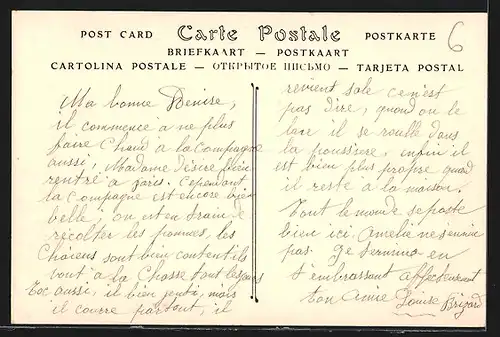 POST CARD Carte Postale POSTKARTE
BRIEFKAART — POSTKAART
CARTOLINA POSTALE — ОТКРЫТОЕ ПИСЬМО — TARJETA POSTAL
6
Ma bonne Denise,
il commence à ne plus
faire Chaud à la Campagne
aussi, Madame Désiré bien
rentré à Paris. Cependant
la Campagne est encore bien
belle; on est en train de
récolter les pommes, les
Chiens sont bien contents ils
vont à la Chasse tout les jours
Toc aussi, il bien genti, mais
il courre partout, il
revient sale ce n'est
pas dire, quand on le
lave il se roulle dans
la poussière, enfin il
est bien plus propre quand
il reste à la maison.
Tout le monde se porte
bien ici, Amelie ne
pas. Je termine en
t'embrassant affectueusement
ton amie Louise Brizard